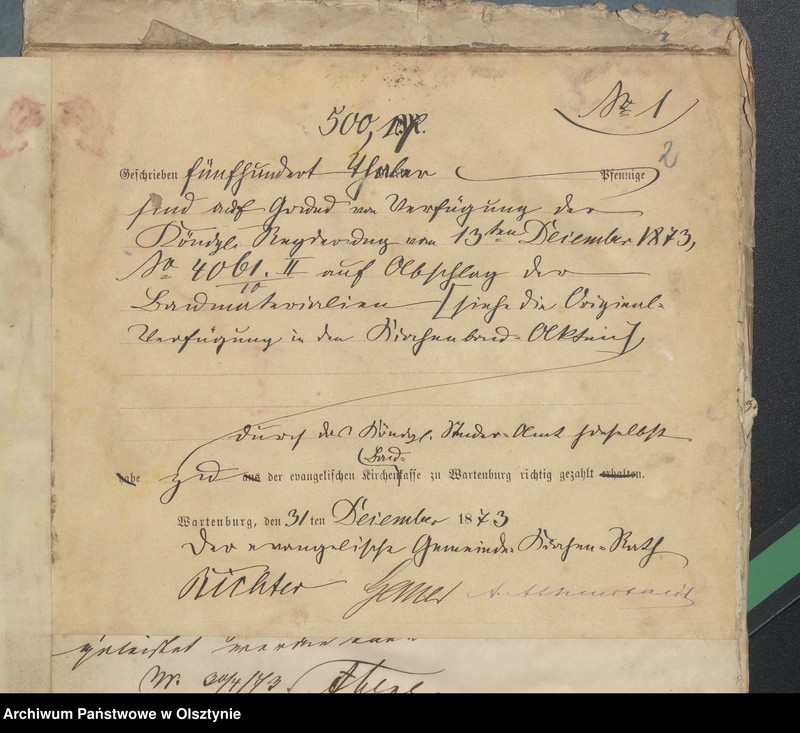 No 1
500
2
Geschrieben fünfhundert Thaler Pfennige
sind auf Grund von Verfügung der
Königl. Regierung vom 13ten Dezember 1873,
No 4061. II auf Abschlag der
10
Baumaterialien [siehe die Original-
Verfügung in den Kirchenbau-Akten],
durch das Königl. Steuer-Amt hieselbst
Bau-
habe zu aus der evangelischen Kirchenkasse zu Wartenburg richtig gezahlt erhalten.
Wartenburg, den 31ten Dezember 1873
Der evangelische Gemeinde-Kirchen-Rath
Richter
geleistet werden
Archiwum Państwowe w Olsztynie